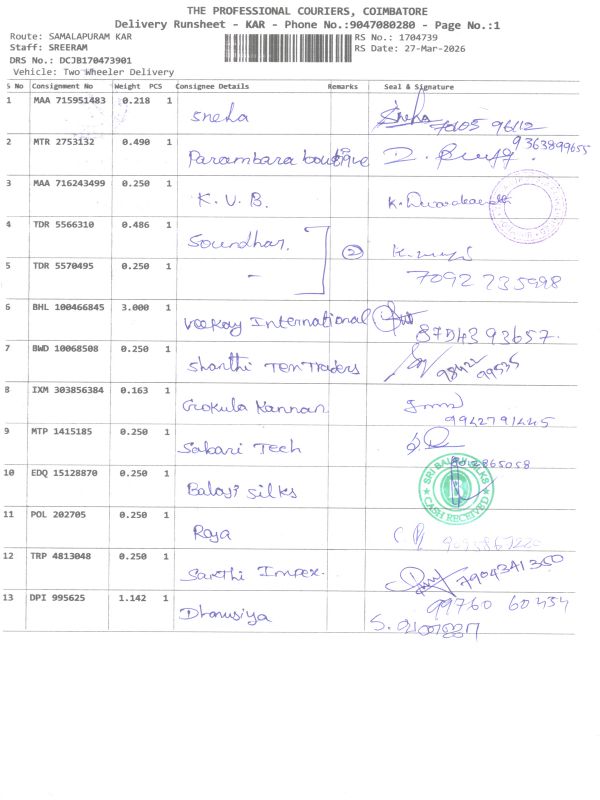 THE PROFESSIONAL COURIERS, COIMBATORE
Delivery Runsheet - KAR - Phone No.:9047080280 - Page No.:1
Route: SAMALAPURAM KAR
RS No.: 1704739
Staff: SREERAM
RS Date: 27-Mar-2026
DRS No.: DCJB170473901
Vehicle: Two Wheeler Delivery
S No Consignment No Weight PCS Consignee Details Remarks Seal & Signature
1 MAA 715951483 0.218 1 Sneha Sneha 70105 96112
2 MTR 2753132 0.490 1 Parambara boutique 9363899655
3 MAA 716243499 0.250 1 K. V. B.
4 TDR 5566310 0.486 1 Soundhar. 2
5 TDR 5570495 0.250 1 - 7092 235998
6 BHL 100466845 3.000 1 Veekay International 87543 93657.
7 BWD 10068508 0.250 1 Shanthi Tex Traders 98422 99535
8 IXM 303856384 0.163 1 Gokula Kannan 9942791445
9 MTP 1415185 0.250 1 Sakari Tech
10 EDQ 15128870 0.250 1 Balaji Silks 8012865058
SRI BALAJI SILKS
CASH RECEIVED
11 POL 202705 0.250 1 Roja
12 TRP 4813048 0.250 1 Sarthi Impex. 7904341350
13 DPI 995625 1.142 1 Dhanusiya 99760 60434